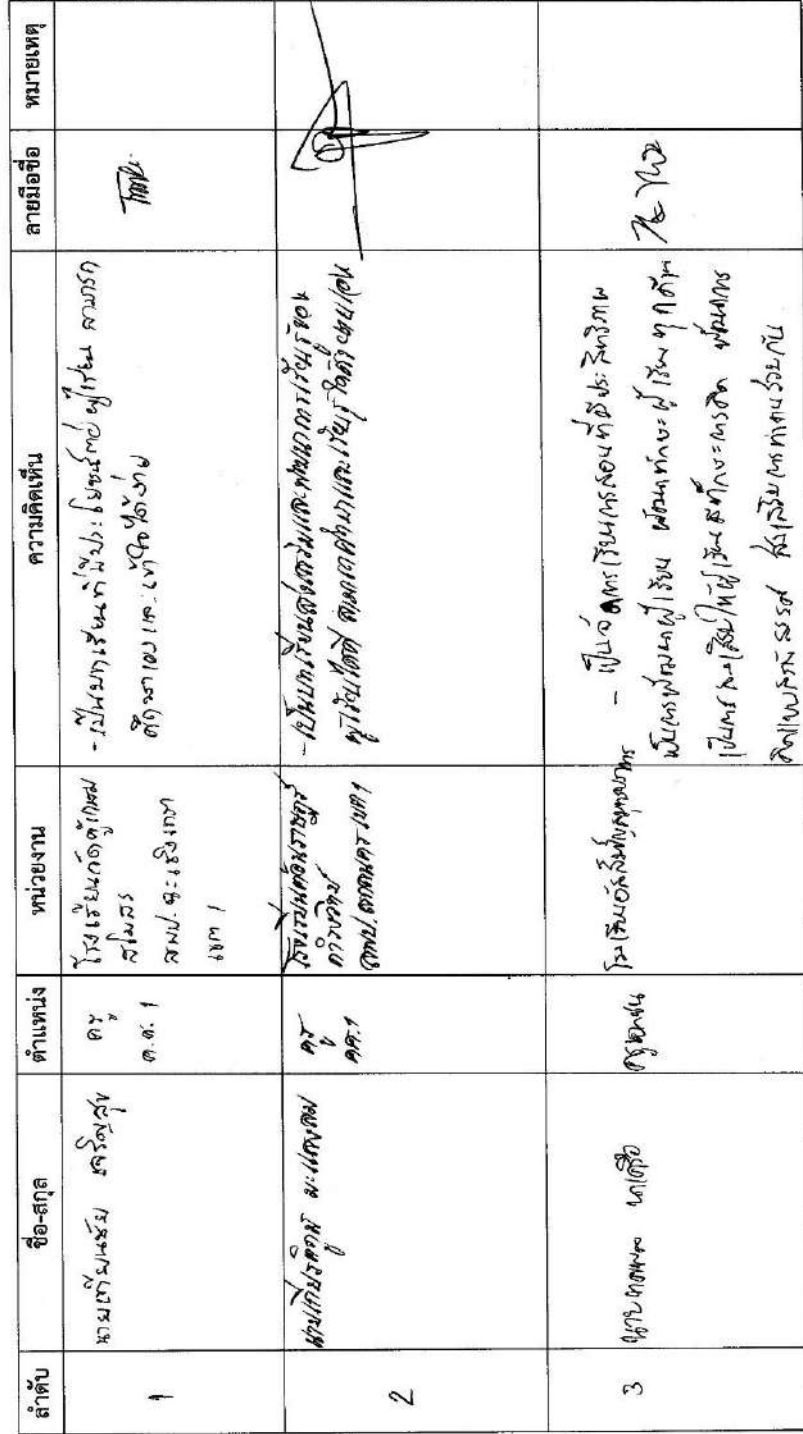 ลำดับ ชื่อ-สกุล ตำแหน่ง หน่วยงาน ความคิดเห็น ลายมือชื่อ หมายเหตุ
1
นายเทียนชัย เจริญสุข
ครู
ค.ศ. 1
โรงเรียนวัดคู้เกษม
สโมสร
สพป. ฉะเชิงเทรา
เขต 1
- เป็นบทเรียนที่มีประโยชน์ต่อผู้เรียน สามารถ
ศึกษาเองและเข้าใจได้ง่าย
2
นายเกียรติภูมิ มะแสงสม
ครู
คศ.1
โรงเรียนต้อนราษฎร์
สพป. สกลนคร เขต 1
- เป็นบทเรียนส่งเสริมและพัฒนาการเรียนรู้ของ
ผู้เรียนได้ดี สามารถศึกษาและเรียนรู้ได้ด้วยตนเอง
3
นาย
ครูเอกชน
โรงเรียนอัสสัมชัญสมุทรปราการ
- เป็นจัดการเรียนการสอนที่มีประสิทธิภาพ
เป็นการพัฒนาผู้เรียน พัฒนาทักษะผู้เรียนทุกด้าน
เป็นการส่งเสริมให้ผู้เรียนมีทักษะการคิด พัฒนาการ
คิดแบบสร้างสรรค์ ส่งเสริมการทำงานร่วมกัน